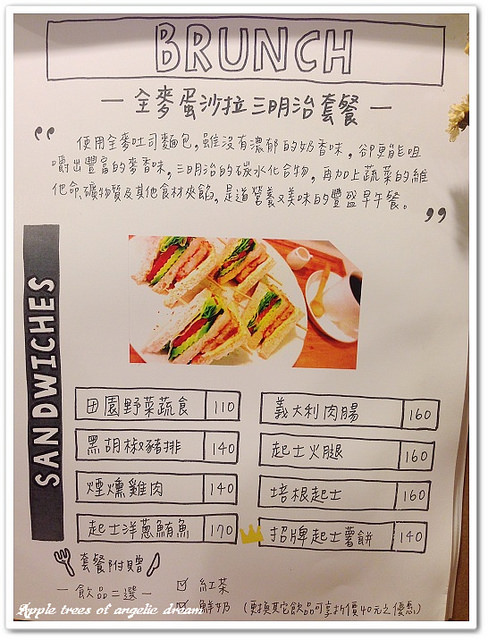 BRUNCH
— 全麥蛋沙拉三明治套餐 —
“ 使用全麥吐司麵包，雖沒有濃郁的奶香味，卻更能咀
嚼出豐富的麥香味，三明治的碳水化合物，再加上蔬菜的維
他命、礦物質及其他食材夾餡，是道營養又美味的豐盛早午餐。 ”
SANDWICHES
田園野菜蔬食 110
黑胡椒豬排 140
煙燻雞肉 140
起士洋蔥鮪魚 170
義大利肉腸 160
起士火腿 160
培根起士 160
招牌起士薯餅 140
套餐附贈
— 飲品二選一
☑ 紅茶
☑ 鮮奶 (更換其它飲品可享折價40元之優惠)
Apple trees of angelic dream